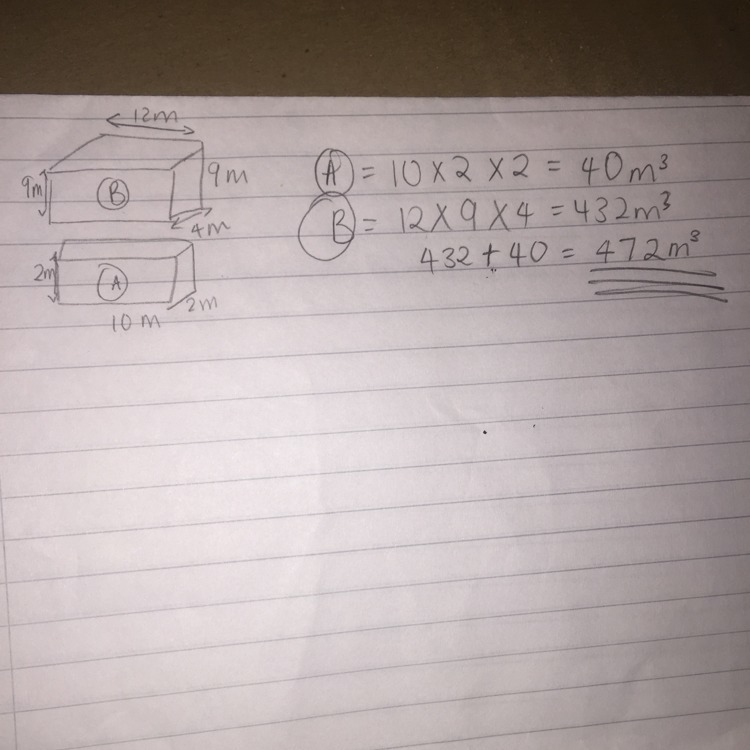 12m
9m
B
9m
4m
2m
A
2m
10 m
A = 10 × 2 × 2 = 40m³
B = 12 × 9 × 4 = 432m³
432 + 40 = 472m³